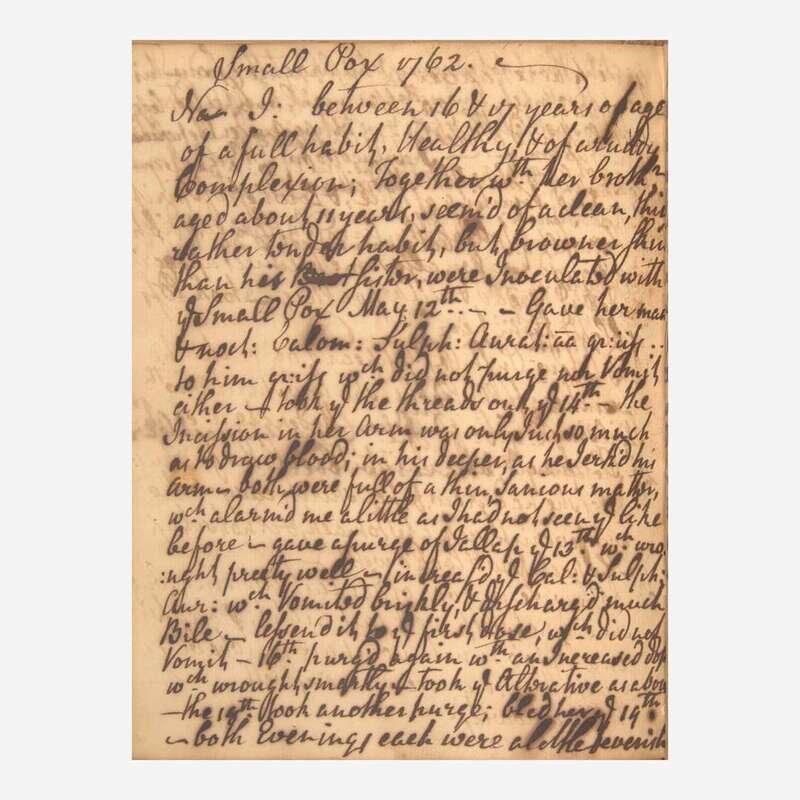 Small Pox 1762.
No I: between 16 & 17 years of age
of a full habit, Healthy, & of a ruddy
Complexion; Together wth her broth
aged about 11 years, seem'd of a clean, thin
rather tender habit, but browner skin
than his Sister, were Inoculated with
ye Small Pox May 12th - - Gave her man
& noct: Calom: Sulph: Aurat: āā gr:iifs ..
to him gr:ifs wch did not purge nor Vomit
either - took the threads out ye 14th - the
Incission in her Arm was only Just so much
as to draw blood; in his deeper, as he Jerk'd his
Arm - both were full of a thin, Sanious matter,
wch alarm'd me a little as I had not seen ye like
before - gave a purge of Jallap ye 13th wch wro
:ught pretty well - increas'd ye Cal: & Sulph:
Aur: wch Vomited briskly, & discharg'd much
Bile - lessend it to ye first dose, wch did not
Vomit - 16th purg'd again wth an Increased dose
wch wrought smartly - took ye Alterative as abov
- the 19th took another purge; bled her ye 19th
- both Evenings each were a little feverish